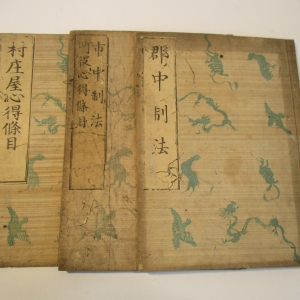 郡中制法
市中制法
町役心得條目
村庄屋心得條目